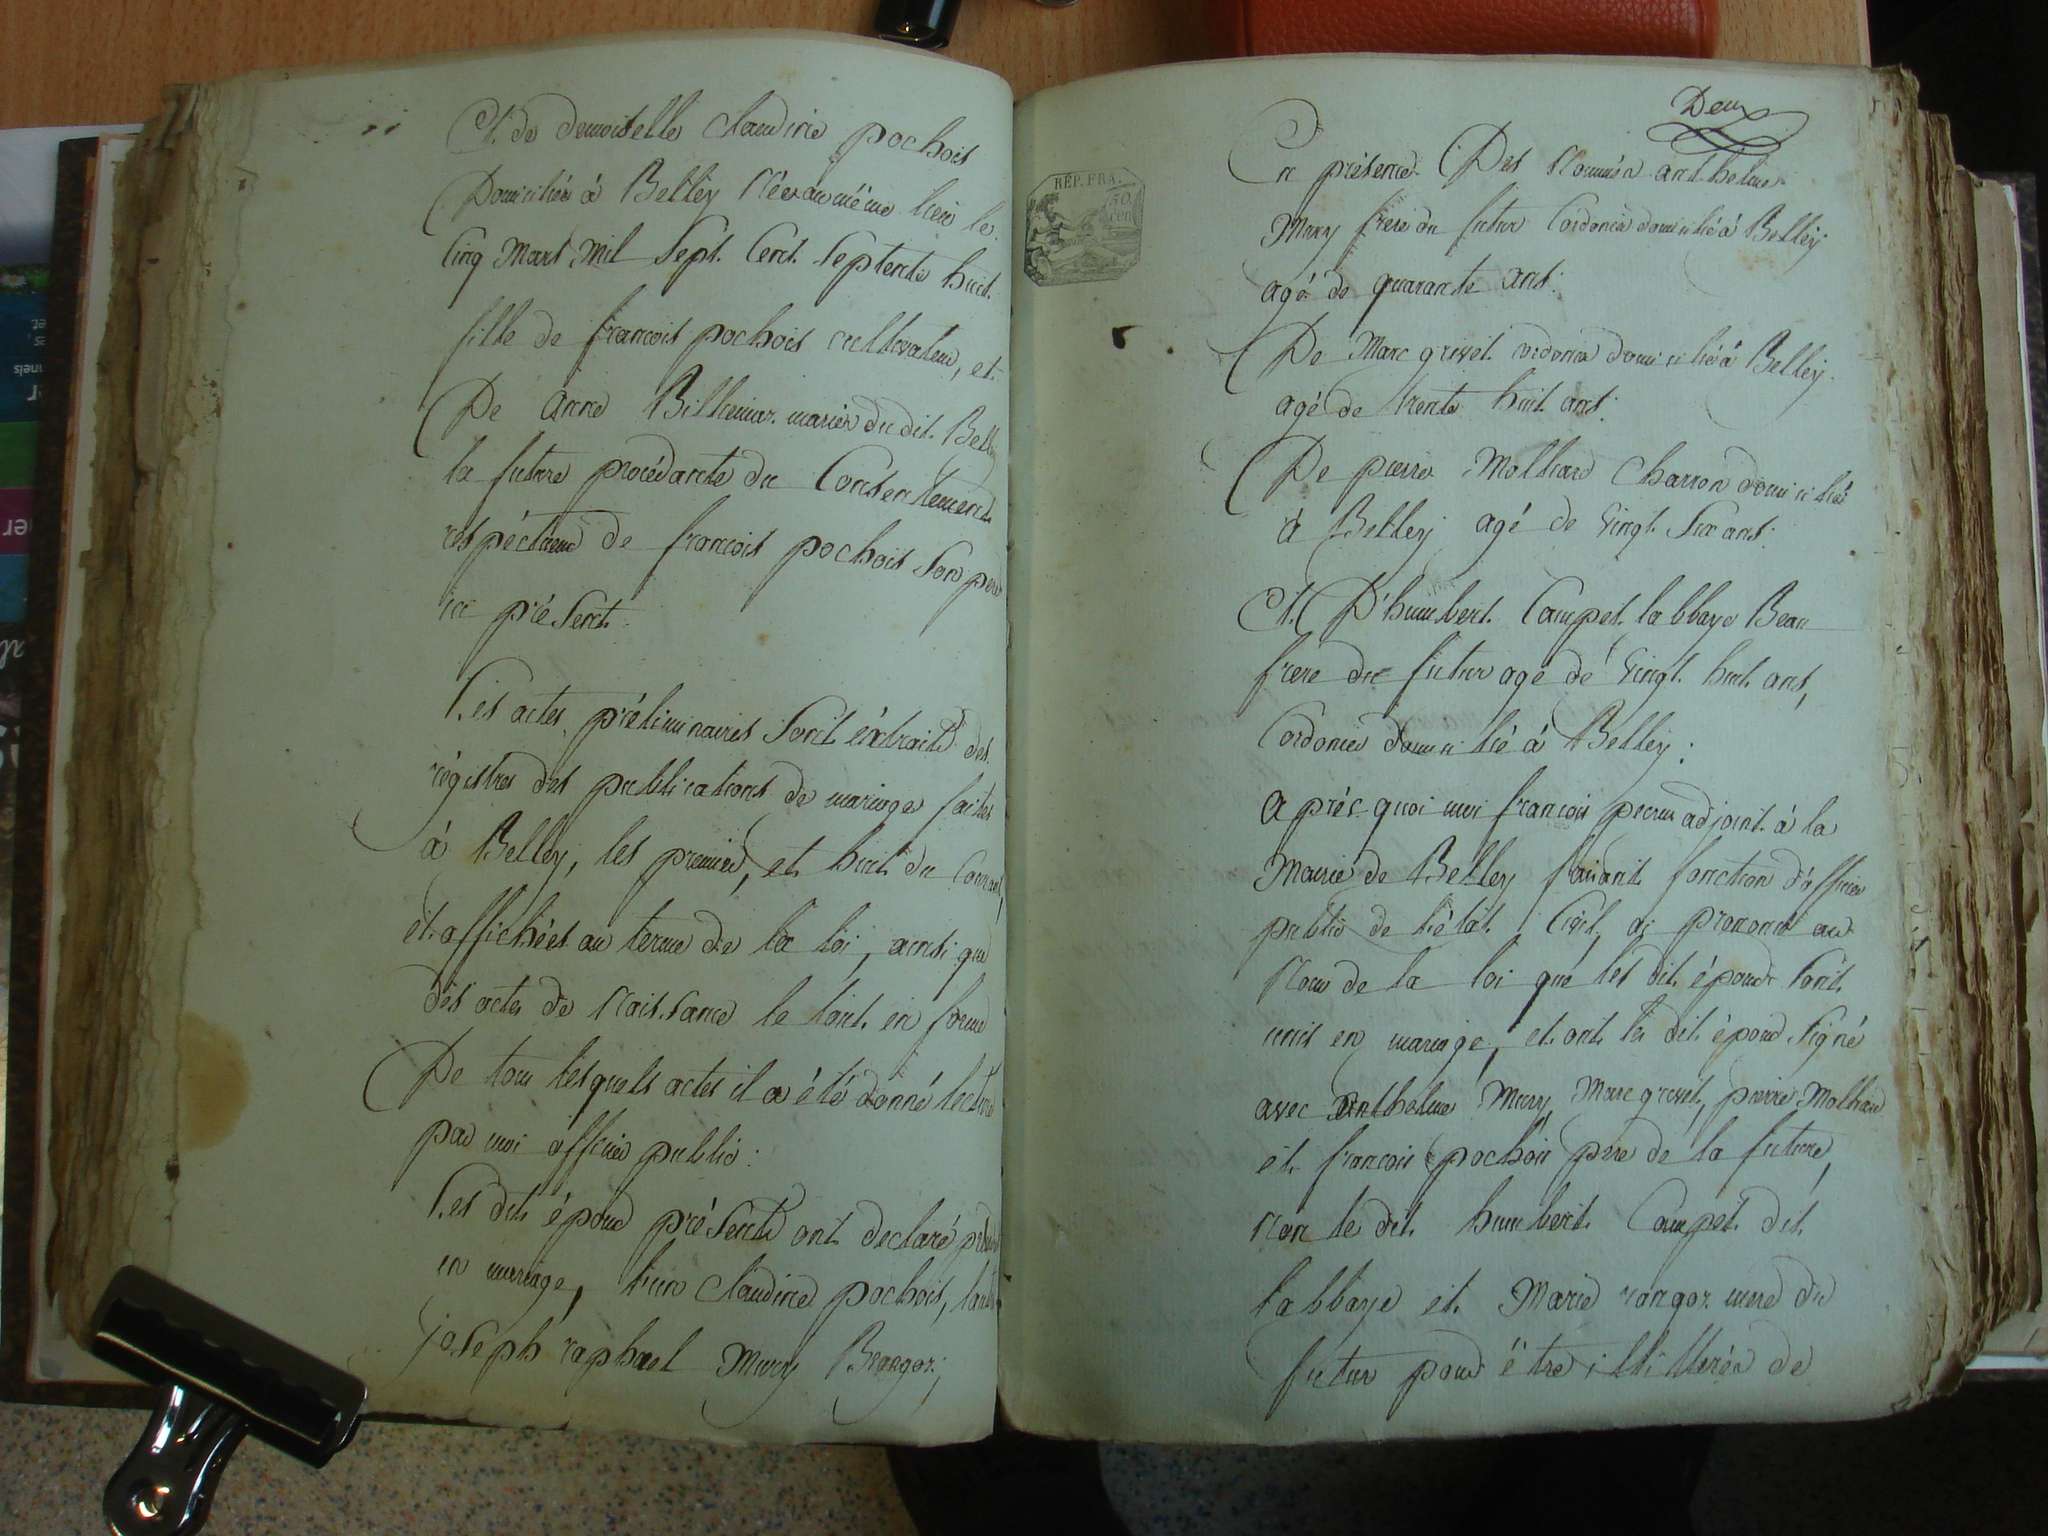 Et de demoiselle Claudine pochois
Domiciliée à Belley Née au même lieu le
Cinq Mars Mil Sept Cent Septente huit
fille de françois pochois cultivateur, et
De Anne mariés du dit Belley
la future procédante du Consentement
respectueux de françois pochois Son pere
ici présent.
Les actes préliminaires Sont éxtraits des
régistres des publications de mariage faites
à Belley, les premier, et huit du Courant,
et affichées au terme de la loi, ainsi que
des actes de Naissance le tout en forme
De tous lesquels actes il a été donné lecture
par moi officier public :
Les dits époux présents ont declaré prendre
en mariage, l'un Claudine pochois, l'autre
joseph raphael Mury
Deux
RÉP. FRA.
50
cen
En présence Des Nommés anthelme
Mury frere du futur Cordonier domicilié à Belley
agé de quarante ans.
De Marc grivet cordonier domicilié à Belley
agé de trente huit ans.
De pierre Molliard Charron domicilié
à Belley agé de Vingt Six ans.
Et D'humbert Campet labbaye Beau
frere du futur agé de Vingt huit ans,
Cordonier domicilié à Belley.
après quoi moi françois adjoint à la
Mairie de Belley faisant fonction d'officier
public de l'état Civil, ai prononcé au
Nom de la loi que les dits époux Sont
unis en mariage, et ont les dits époux Signé
avec anthelme Mury, Marc grivet, pierre Molliard
et françois pochois pere de la future,
Non le dit humbert Campet dit
labbaye et Marie rongoz mere du
futur pour être illitterés de